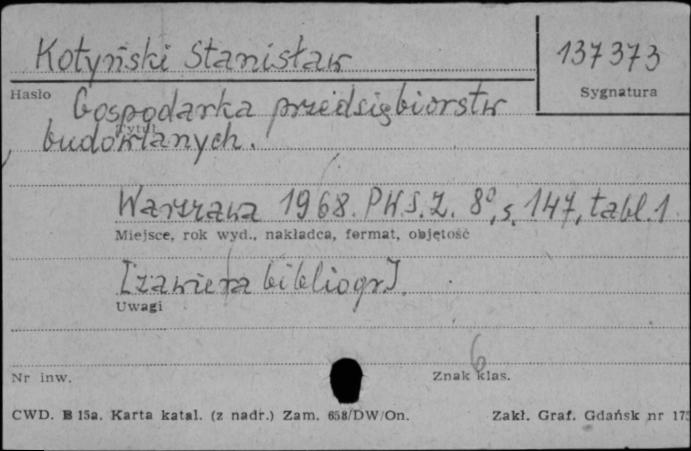 Kotyński Stanisław
137373
Hasło
Sygnatura
Gospodarka przedsiębiorstw
Tytuł
budowlanych.
Warszawa 1968. PWSZ. 8°, s. 147, tabl. 1
Miejsce, rok wyd., nakładca, format, objętość
[zawiera bibliogr].
Uwagi
6
Nr inw.
Znak klas.
CWD. B 15a. Karta katal. (z nadr.) Zam. 658/DW/On.
Zakł. Graf. Gdańsk nr 17